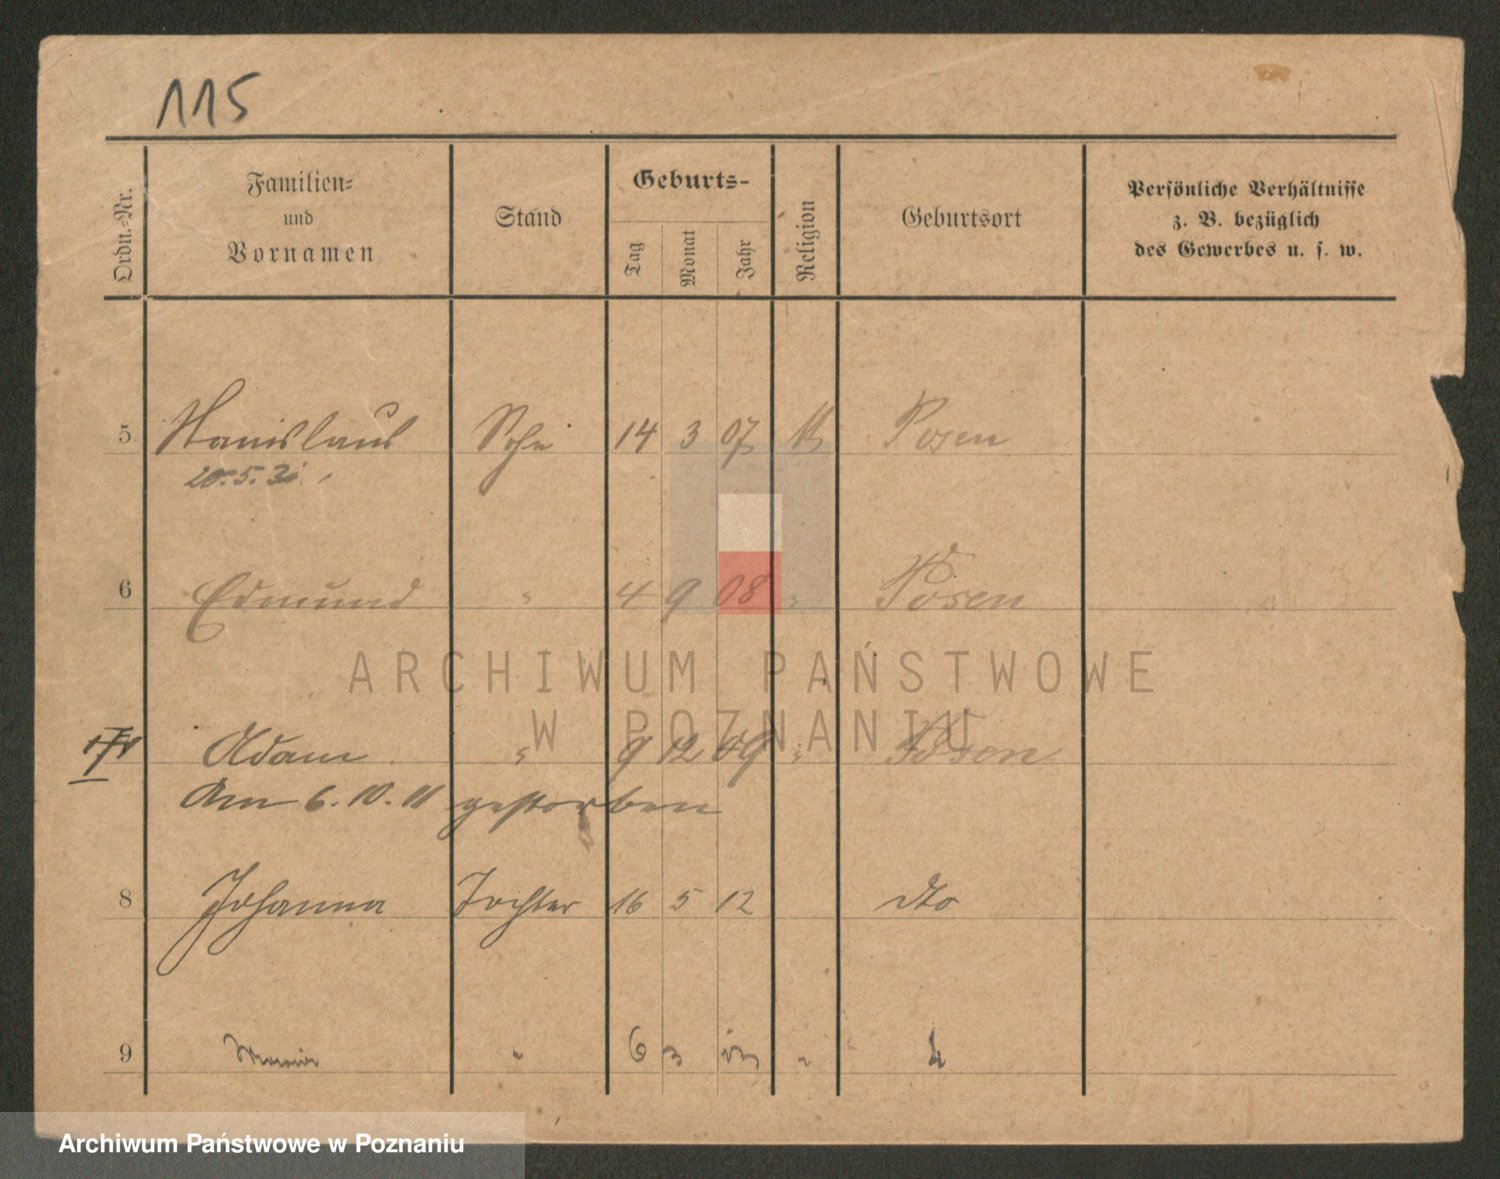 115
Ordn.-Nr.
Familien-
und
Vornamen
Stand
Geburts-
Tag
Monat
Jahr
Religion
Geburtsort
Persönliche Verhältnisse
z. B. bezüglich
des Gewerbes u. s. w.
5 Stanislaus Sohn 14 3 07 k Posen
20.5.30.
6 Edmund " 4 9 08 " Posen
ARCHIWUM PAŃSTWOWE
W POZNANIU
Adam " 9 12 09 " Posen
Am 6.10.11 gestorben
8 Johanna Tochter 16 5 12 dto
9 " 6 3 "
Archiwum Państwowe w Poznaniu